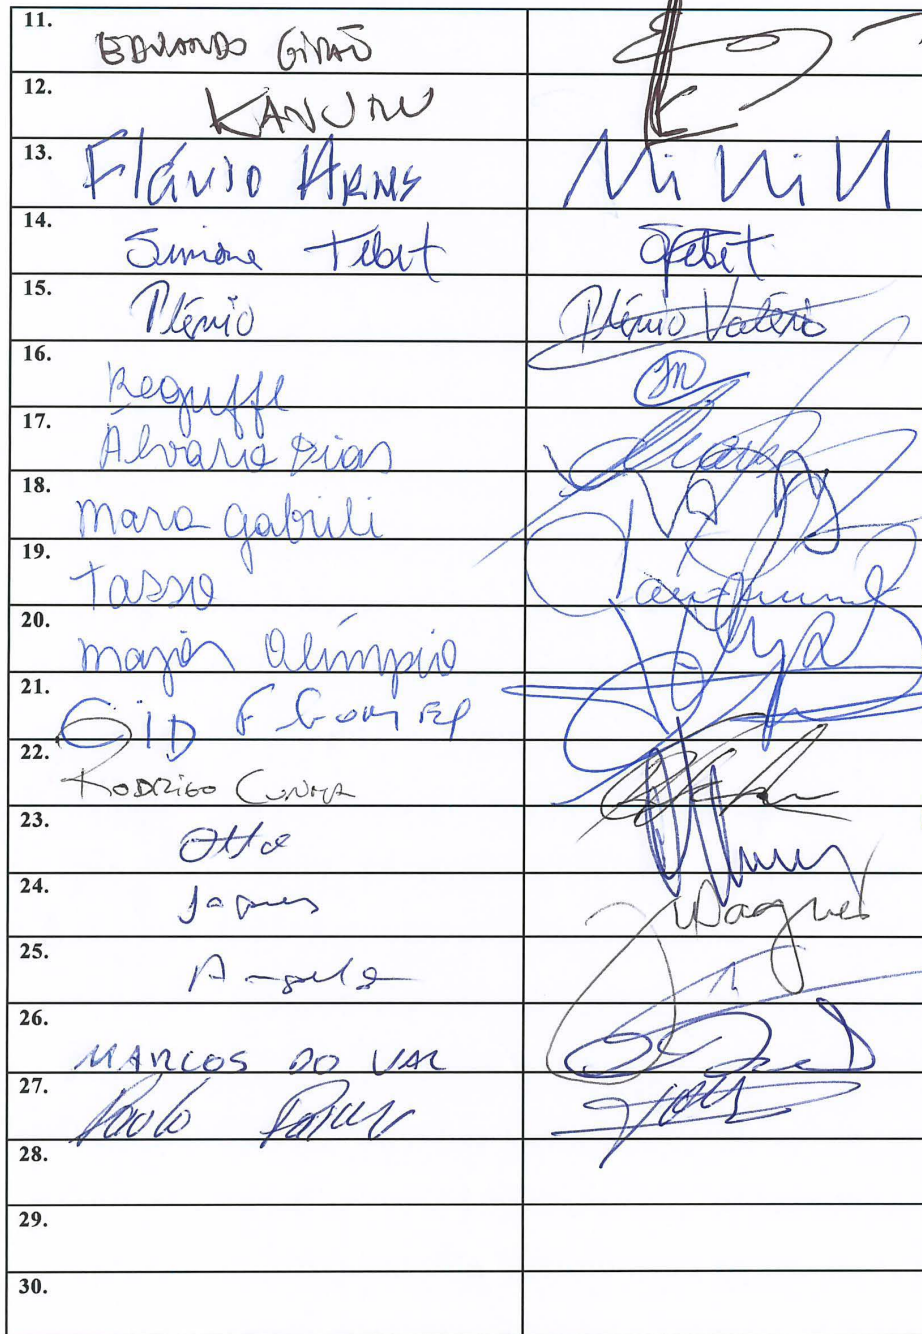 11. EDUARDO GIRÃO
12. KAJURU
13. Flávio ARNS
14. Simone Tebet STebet
15. Plínio Plínio Valério
16. Reguffe
17. Álvaro Dias
18. Mara Gabrili
19. Tasso
20. Major Olímpio
21. CID F GOMES
22. RODRIGO CUNHA
23. Otto
24. Jaques JWagner
25. Angelo
26. MARCOS DO VAL
27. Paulo Paim
28.
29.
30.